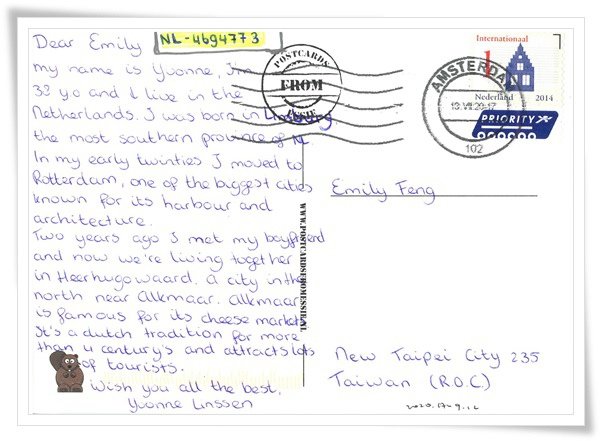 Dear Emily
NL-4694773
my name is Yvonne, I'm
33 y.o and I live in the
Netherlands. I was born in Limburg
the most southern province of NL
In my early twinties I moved to
Rotterdam, one of the biggest cities
known for its harbour and
architecture.
Two years ago I met my boyfriend
and now we're living together
in Heerhugowaard. A city in the
north near Alkmaar. Alkmaar
is famous for its cheese market.
It's a dutch tradition for more
than 4 century's and attracts lots
of tourists.
Wish you all the best,
Yvonne Linssen
POSTCARDS
FROM
Internationaal
1
Nederland 2014
PRIORITY
AMSTERDAM
102
WWW.POSTCARDSFROMESSIE.NL
Emily Feng
New Taipei City 235
Taiwan (R.O.C.)